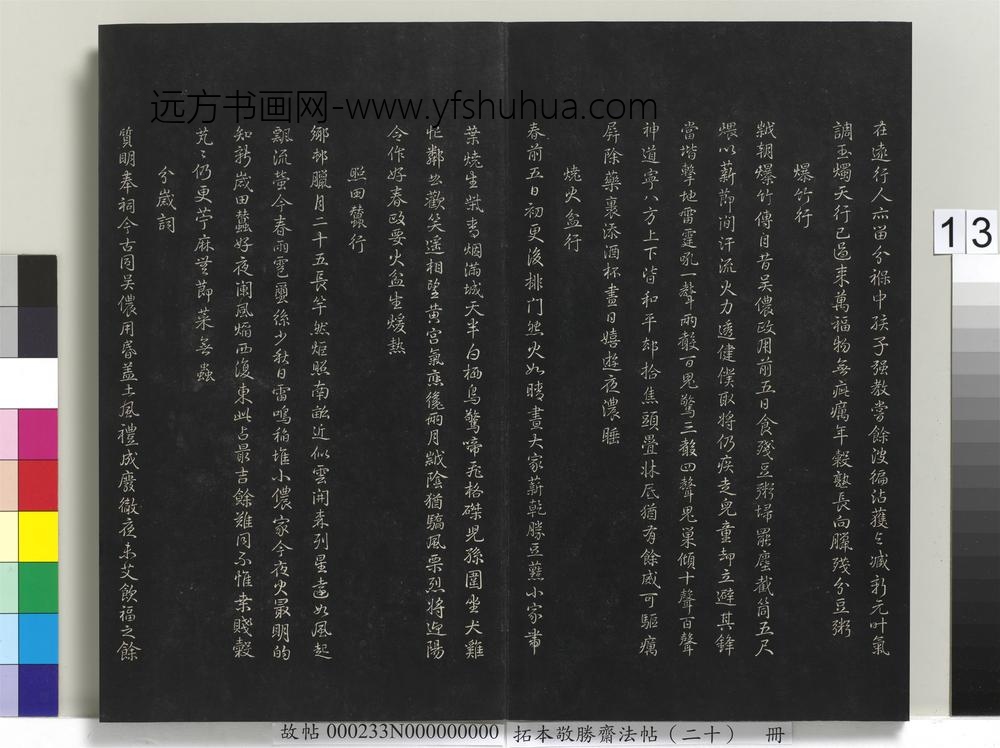 远方书画网-www.yfshuhua.com
在遠行人亦留分褓中孩子强教嘗餘波徧沾獲與臧新元叶氣
調玉燭天行已過來萬福物無疵癘年穀熟長向臘殘分豆粥
爆竹行
歲朝爆竹傳自昔吳儂政用前五日食殘豆粥掃罷塵截筒五尺
煨以薪節間汗流火力透健僕取將仍疾走兒童却立避其鋒
當堦擊地雷霆吼一聲兩聲百鬼驚三聲四聲鬼巢傾十聲百聲
神道寧八方上下皆和平却拾焦頭疊牀底猶有餘威可驅癘
屏除藥裹添酒杯晝日嬉遊夜濃睡
燒火盆行
春前五日初更後排門然火如晴晝大家薪乾勝豆䕸小家帶
葉燒生柴青烟滿城天半白栖鳥驚啼飛格磔兒孫圍坐犬雞
忙鄰曲歡笑遥相望黃宮氣應纔兩月歲陰猶驕風栗烈將迎陽
合作好春政要火盆生煖熱
照田蠶行
鄉邨臘月二十五長竿然炬照南畝近似雲開森列星遠如風起
飄流螢今春雨雹繭絲少秋日雷鳴稻堆小儂家今夜火最明的
知新歲田蠶好夜闌風焰西復東此占最吉餘難同不惟桑賤穀
芃〻仍更苧麻無節菜無蟲
分歲詞
質明奉祠今古同吳儂用昏蓋土風禮成廢徹夜未艾飲福之餘
13
故帖 000233N000000000
拓本敬勝齋法帖（二十） 冊